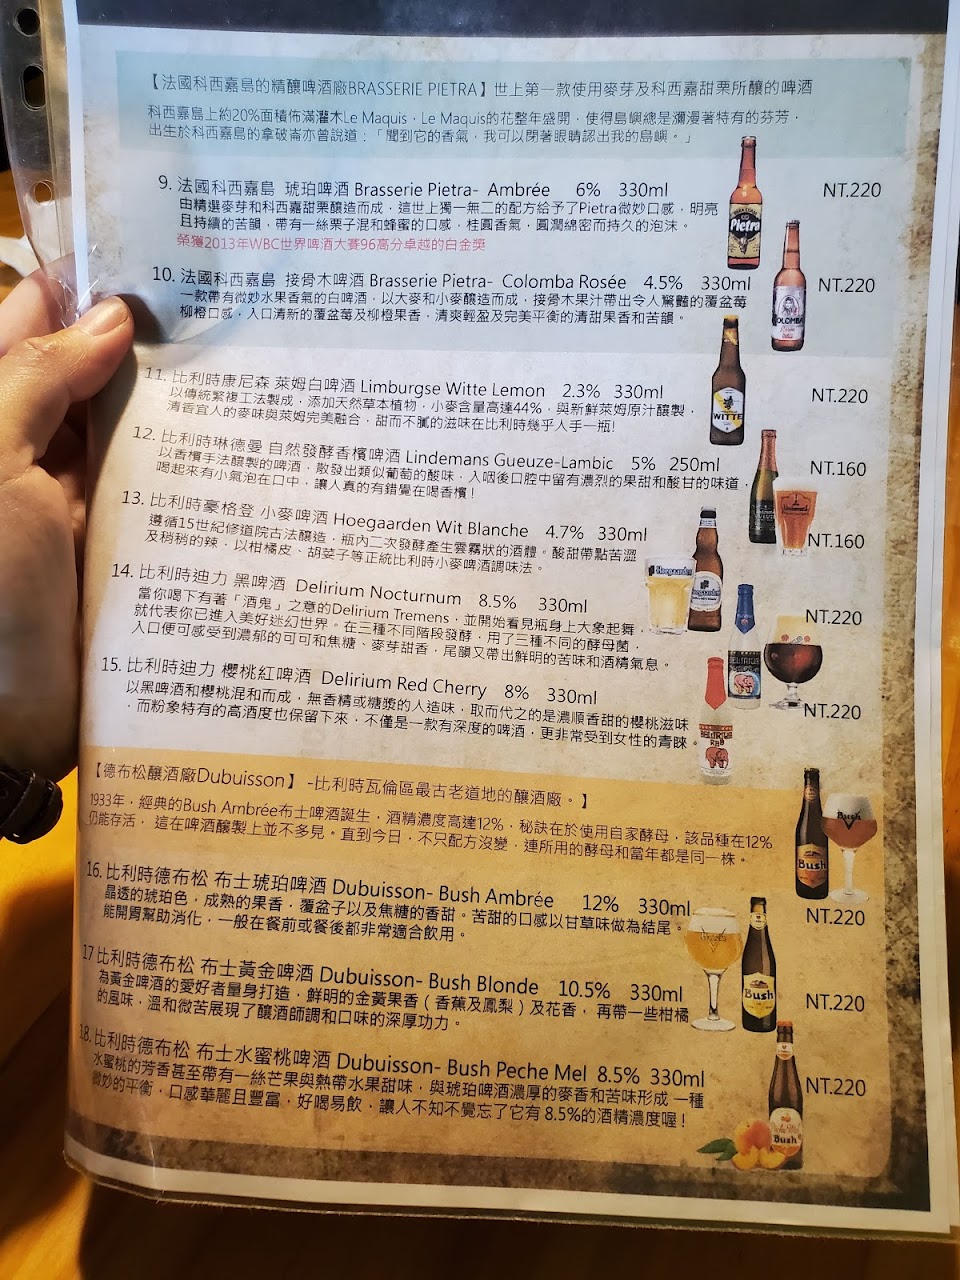 【法國科西嘉島的精釀啤酒廠BRASSERIE PIETRA】世上第一款使用麥芽及科西嘉甜栗所釀的啤酒
科西嘉島上約20%面積佈滿灌木Le Maquis，Le Maquis的花整年盛開，使得島嶼總是瀰漫著特有的芬芳，
出生於科西嘉島的拿破崙亦曾說道：「聞到它的香氣，我可以閉著眼睛認出我的島嶼。」
9. 法國科西嘉島 琥珀啤酒 Brasserie Pietra- Ambrée 6% 330ml NT.220
由精選麥芽和科西嘉甜栗釀造而成，這世上獨一無二的配方給予了Pietra微妙口感，明亮
且持續的苦韻，帶有一絲栗子混和蜂蜜的口感，桂圓香氣，圓潤綿密而持久的泡沫。
榮獲2013年WBC世界啤酒大賽96高分卓越的白金獎
Pietra
10. 法國科西嘉島 接骨木啤酒 Brasserie Pietra- Colomba Rosée 4.5% 330ml NT.220
一款帶有微妙水果香氣的白啤酒，以大麥和小麥釀造而成，接骨木果汁帶出令人驚豔的覆盆莓
柳橙口感，入口清新的覆盆莓及柳橙果香，清爽輕盈及完美平衡的清甜果香和苦韻。
COLOMBA
11. 比利時康尼森 萊姆白啤酒 Limburgse Witte Lemon 2.3% 330ml NT.220
以傳統繁複工法製成，添加天然草本植物，小麥含量高達44%，與新鮮萊姆原汁釀製，
清香宜人的麥味與萊姆完美融合，甜而不膩的滋味在比利時幾乎人手一瓶!
WITTE
12. 比利時琳德曼 自然發酵香檳啤酒 Lindemans Gueuze-Lambic 5% 250ml NT.160
以香檳手法釀製的啤酒，散發出類似葡萄的酸味，入咽後口腔中留有濃烈的果甜和酸甘的味道，
喝起來有小氣泡在口中，讓人真的有錯覺在喝香檳！
13. 比利時豪格登 小麥啤酒 Hoegaarden Wit Blanche 4.7% 330ml NT.160
遵循15世紀修道院古法釀造，瓶內二次發酵產生雲霧狀的酒體。酸甜帶點苦澀
及稍稍的辣，以柑橘皮、胡荽子等正統比利時小麥啤酒調味法。
Hoegaarden
14. 比利時迪力 黑啤酒 Delirium Nocturnum 8.5% 330ml NT.220
當你喝下有著「酒鬼」之意的Delirium Tremens，並開始看見瓶身上大象起舞，
就代表你已進入美好迷幻世界。在三種不同階段發酵，用了三種不同的酵母菌，
入口便可感受到濃郁的可可和焦糖、麥芽甜香，尾韻又帶出鮮明的苦味和酒精氣息。
DELIRIUM
15. 比利時迪力 櫻桃紅啤酒 Delirium Red Cherry 8% 330ml NT.220
以黑啤酒和櫻桃混和而成，無香精或糖漿的人造味，取而代之的是濃順香甜的櫻桃滋味
，而粉象特有的高酒度也保留下來，不僅是一款有深度的啤酒，更非常受到女性的青睞。
DELIRIUM
RED
【德布松釀酒廠Dubuisson】-比利時瓦倫區最古老道地的釀酒廠。】
1933年，經典的Bush Ambrée布士啤酒誕生，酒精濃度高達12%，秘訣在於使用自家酵母，該品種在12%
仍能存活， 這在啤酒釀製上並不多見。直到今日，不只配方沒變，連所用的酵母和當年都是同一株。
Bush
Bush
16. 比利時德布松 布士琥珀啤酒 Dubuisson- Bush Ambrée 12% 330ml NT.220
晶透的琥珀色，成熟的果香，覆盆子以及焦糖的香甜。苦甜的口感以甘草味做為結尾。
能開胃幫助消化，一般在餐前或餐後都非常適合飲用。
17 比利時德布松 布士黃金啤酒 Dubuisson- Bush Blonde 10.5% 330ml NT.220
為黃金啤酒的愛好者量身打造，鮮明的金黃果香（香蕉及鳳梨）及花香， 再帶一些柑橘
的風味，溫和微苦展現了釀酒師調和口味的深厚功力。
Bush
18. 比利時德布松 布士水蜜桃啤酒 Dubuisson- Bush Peche Mel 8.5% 330ml NT.220
水蜜桃的芳香甚至帶有一絲芒果與熱帶水果甜味，與琥珀啤酒濃厚的麥香和苦味形成 一種
微妙的平衡，口感華麗且豐富，好喝易飲，讓人不知不覺忘了它有 8.5%的酒精濃度喔！
Bush